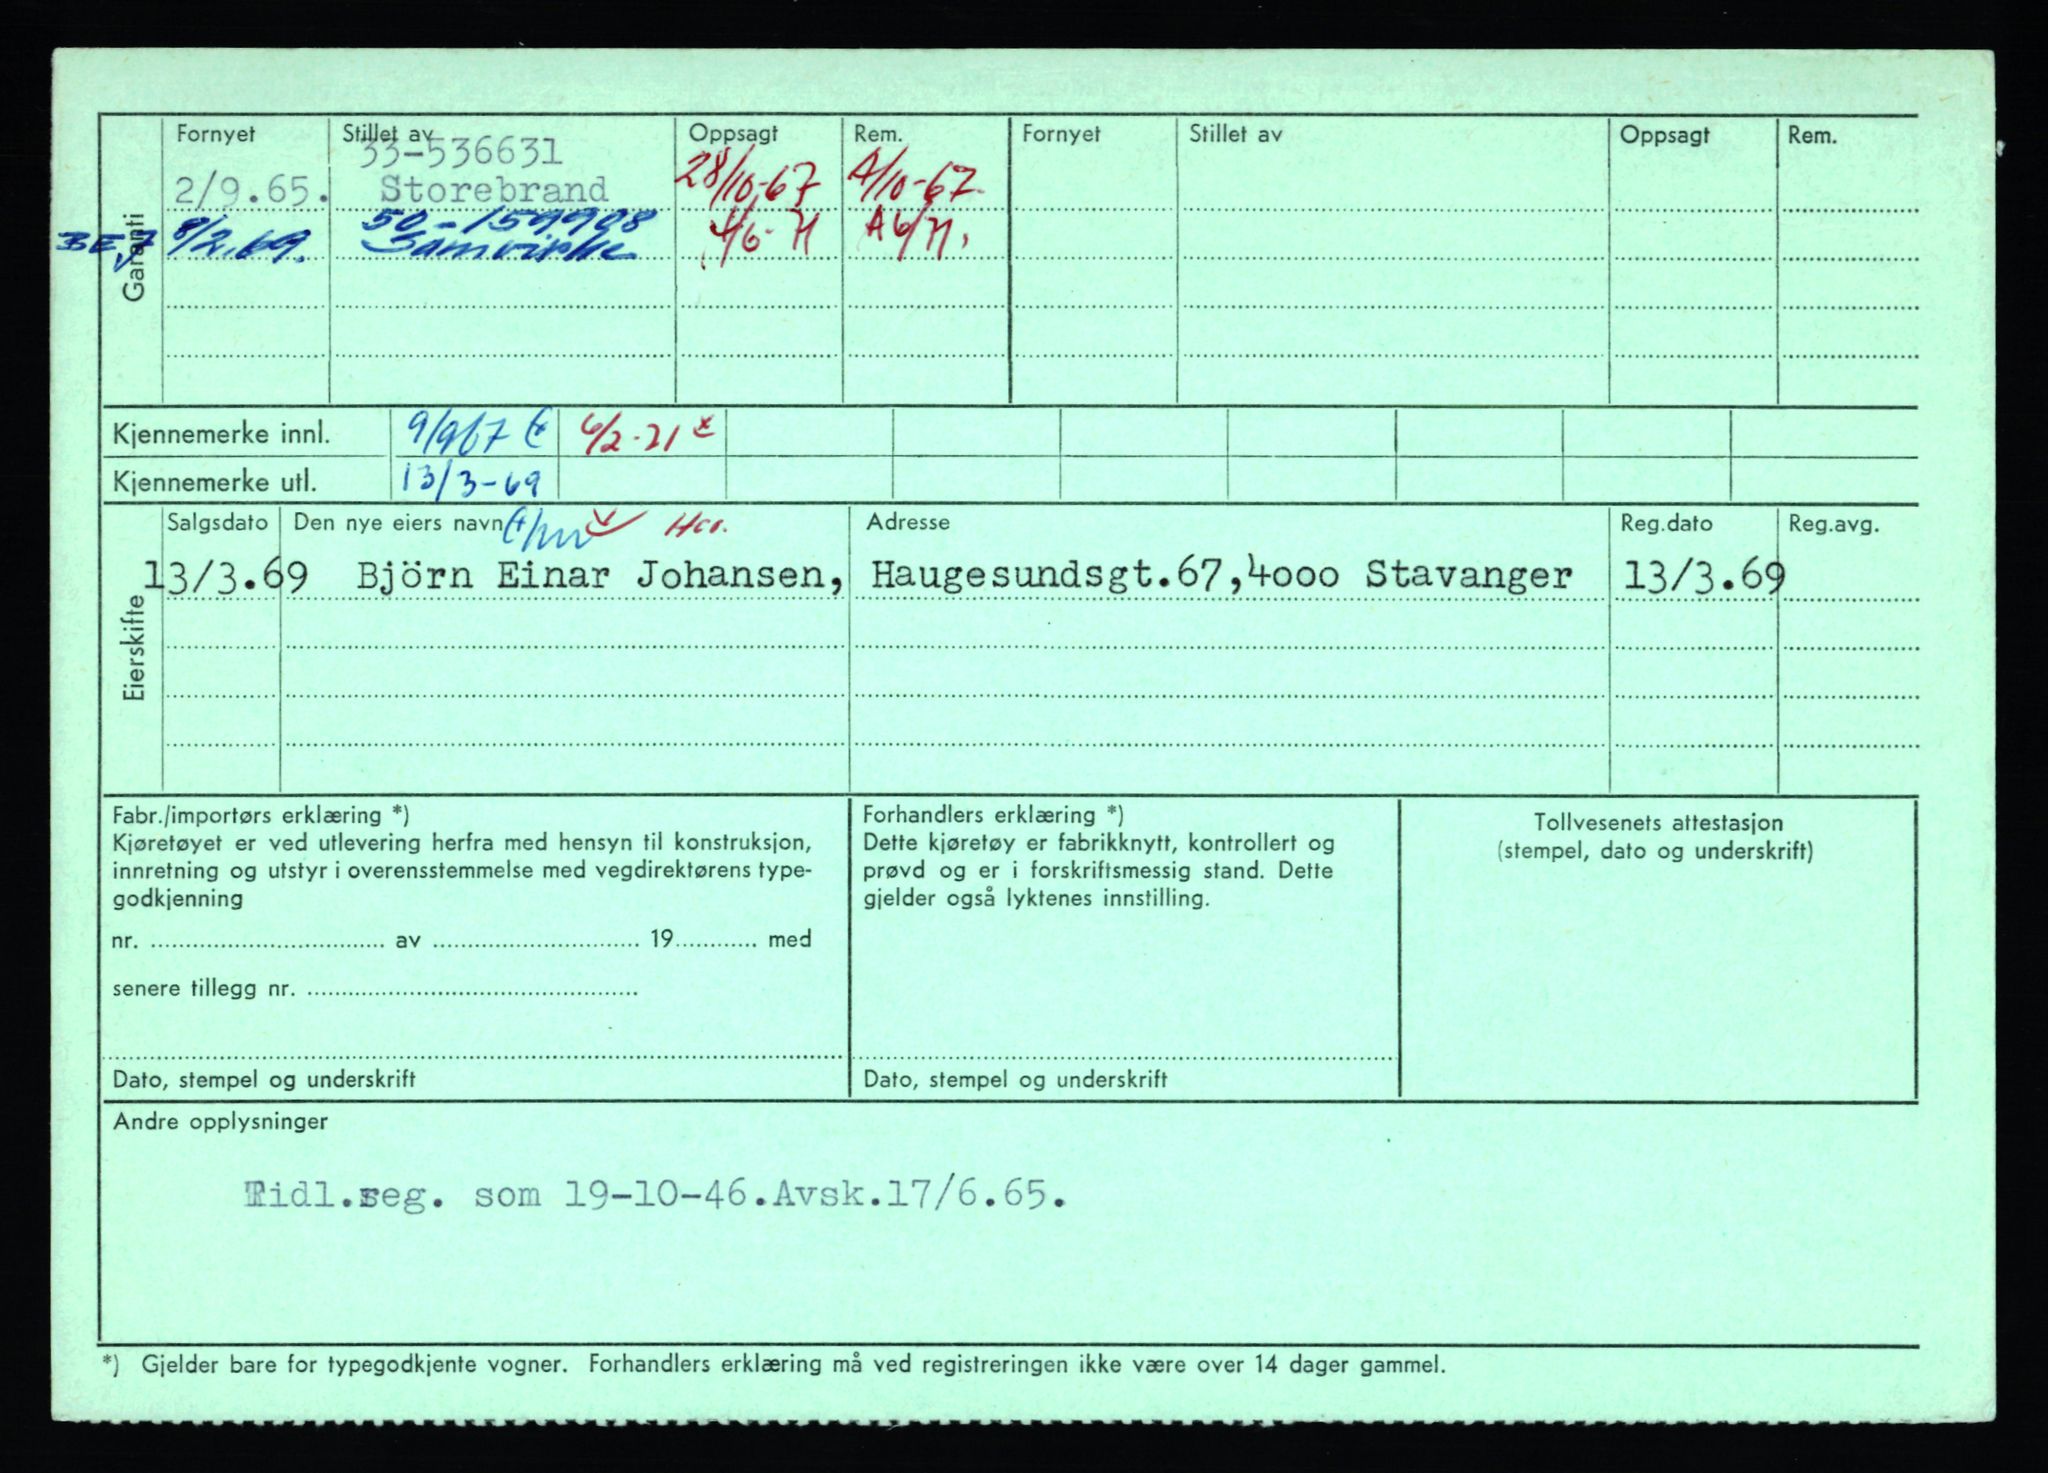 Garanti
Fornyet Stillet av Oppsagt Rem. Fornyet Stillet av Oppsagt Rem.
33-536631
2/9.65. Storebrand 28/10-67 A/10-67.
50-159908
8/2.69. Samvirke 4/6-71 A 6/71.
Kjennemerke innl. 9/967 6/2-71
Kjennemerke utl. 13/3-69
Eierskifte
Salgsdato Den nye eiers navn Adresse Reg.dato Reg.avg.
13/3.69 Björn Einar Johansen, Haugesundsgt.67,4000 Stavanger 13/3.69
Fabr./importørs erklæring *)
Kjøretøyet er ved utlevering herfra med hensyn til konstruksjon,
innretning og utstyr i overensstemmelse med vegdirektørens type-
godkjenning
nr. .................. av .................. 19............ med
senere tillegg nr. ..................
Dato, stempel og underskrift
Forhandlers erklæring *)
Dette kjøretøy er fabrikknytt, kontrollert og
prøvd og er i forskriftsmessig stand. Dette
gjelder også lyktenes innstilling.
Dato, stempel og underskrift
Tollvesenets attestasjon
(stempel, dato og underskrift)
Andre opplysninger
Tidl.reg. som 19-10-46.Avsk.17/6.65.
*) Gjelder bare for typegodkjente vogner. Forhandlers erklæring må ved registreringen ikke være over 14 dager gammel.